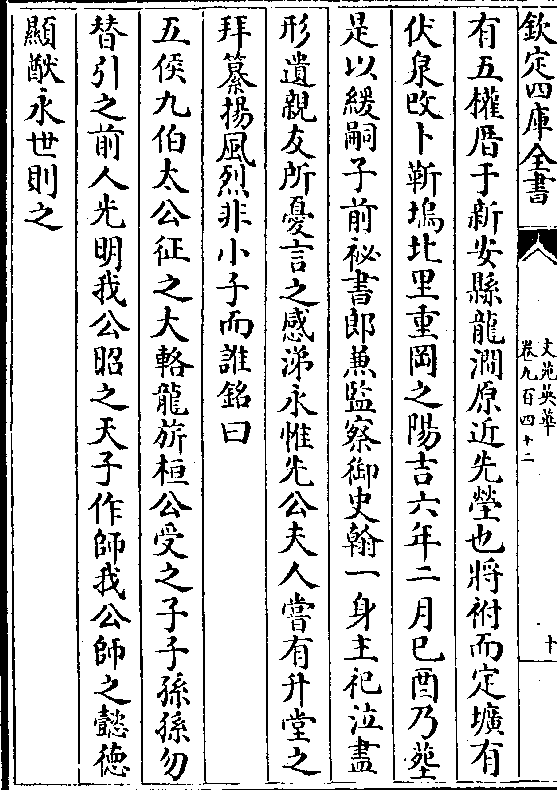 欽定四庫全書
文苑英華
卷九百四十二
十
有五權厝于新安縣龍澗原近先塋也將祔而定壙有
伏泉改卜蘄塢北里重岡之陽吉六年二月巳酉乃塟
是以緩嗣子前祕書郎兼監察御史翰一身主祀泣盡
形遺親友所憂言之感涕永惟先公夫人嘗有升堂之
拜纂揚風烈非小子而誰銘曰
五侯九伯太公征之大輅龍旂桓公受之子子孫孫勿
替引之前人光明我公昭之天子作師我公師之懿德
顯猷永世則之